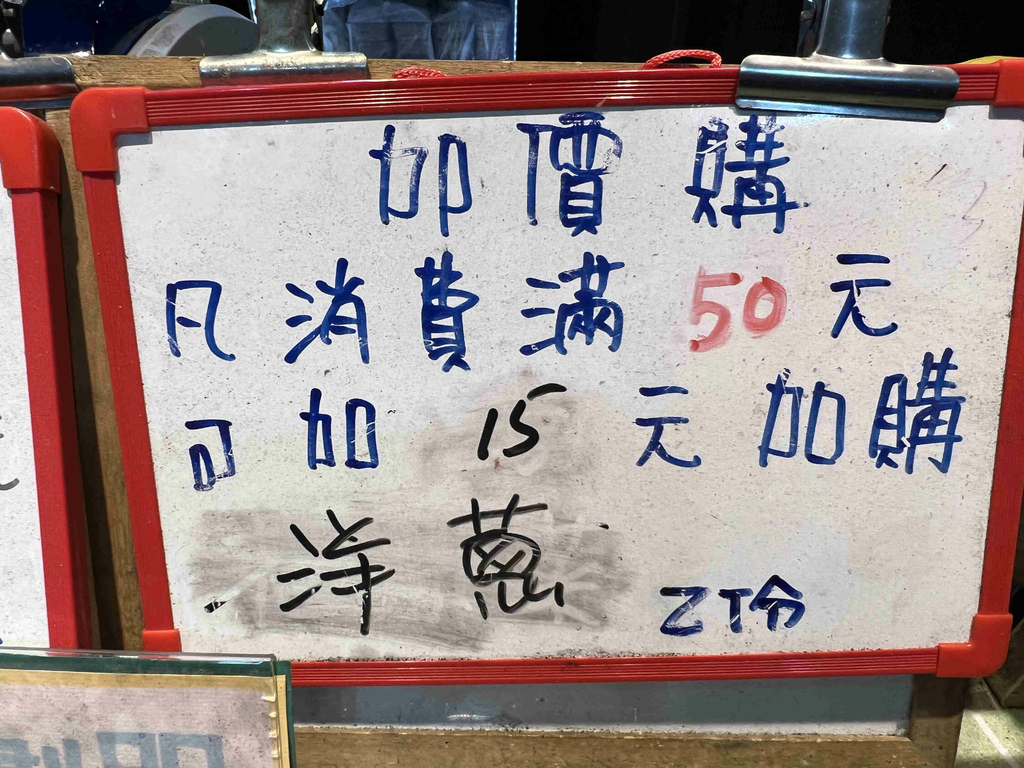 加價購
凡消費滿50元
可加15元加購
洋蔥
ZT分